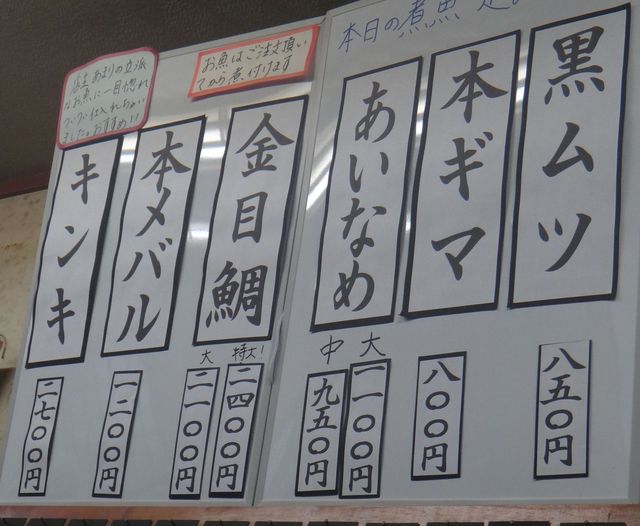 本日の煮魚
黒ムツ
八五〇円
本ギマ
八〇〇円
あいなめ
大
一一〇〇円
中
九五〇円
お魚はご注文頂い
てから煮付けます
金目鯛
特大!
二四〇〇円
大
二一〇〇円
本メバル
一二〇〇円
店主あまりの立派
なお魚に一目惚れ
ついつい仕入れちゃい
ました。おすすめ!!
キンキ
二七〇〇円